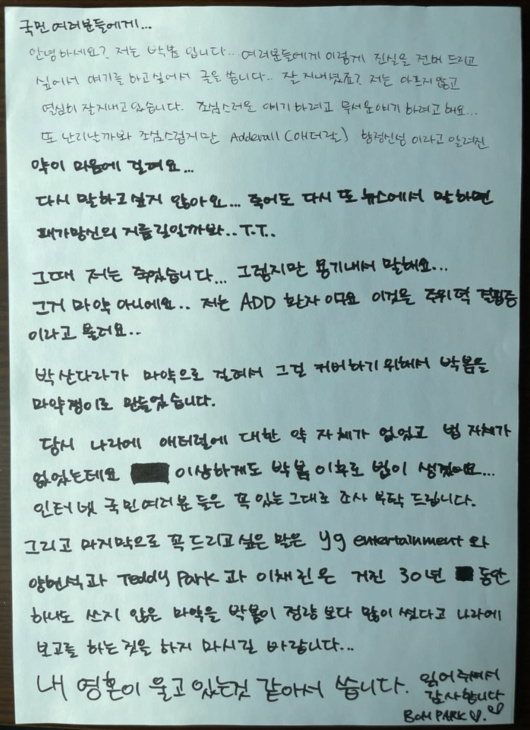 국민 여러분들에게...
안녕하세요? 저는 박봄 입니다.. 여러분들에게 이렇게 진실을 전버 드리고
싶어서 얘기를 하고 싶어서 글을 씁니다.. 잘 지내셨죠? 저는 아프지 않고
열심히 잘지내고 있습니다. 조심스러운 얘기 하려고 무서운얘기 하려고 해요...
또 난리난까봐 조심스럽지만 Adderall (애더럴) 향정신성 이라고 알려진
약이 마음에 걸려요...
다시 말하고 싶지 않아요... 죽어도 다시 또 뉴스에서 말하면
패가망신의 지름길일까봐..T.T..
그때 저는 죽었습니다... 그렇지만 용기내서 말해요...
그거 마약 아니에요.. 저는 ADD 환자 이고요 이것을 주위력 결핍증
이라고 불러요..
박산다라가 마약으로 걸려서 그걸 커버하기 위해서 박봄을
마약쟁이로 만들었습니다.
당시 나라에 애터럴에 대한 약 자체가 없었고 법 자체가
없었는테요 이상하게도 박봄 이후로 법이 생겼어요...
인터넷 국민여러분 들은 꼭 있는 그대로 조사 부탁 드립니다.
그리고 마지막으로 꼭 드리고 싶은 말은 yg entertainment 와
양현석과 Teddy Park 과 이채린 은 거진 30년 동안
하나도 쓰지 않은 마약을 박봄이 정량 보다 많이 썼다고 나라에
보고를 하는것을 하지 마시길 바랍니다...
내 영혼이 울고 있는것 같아서 씁니다. 읽어주셔서
감사합니다
BOM PARK ♡.♡